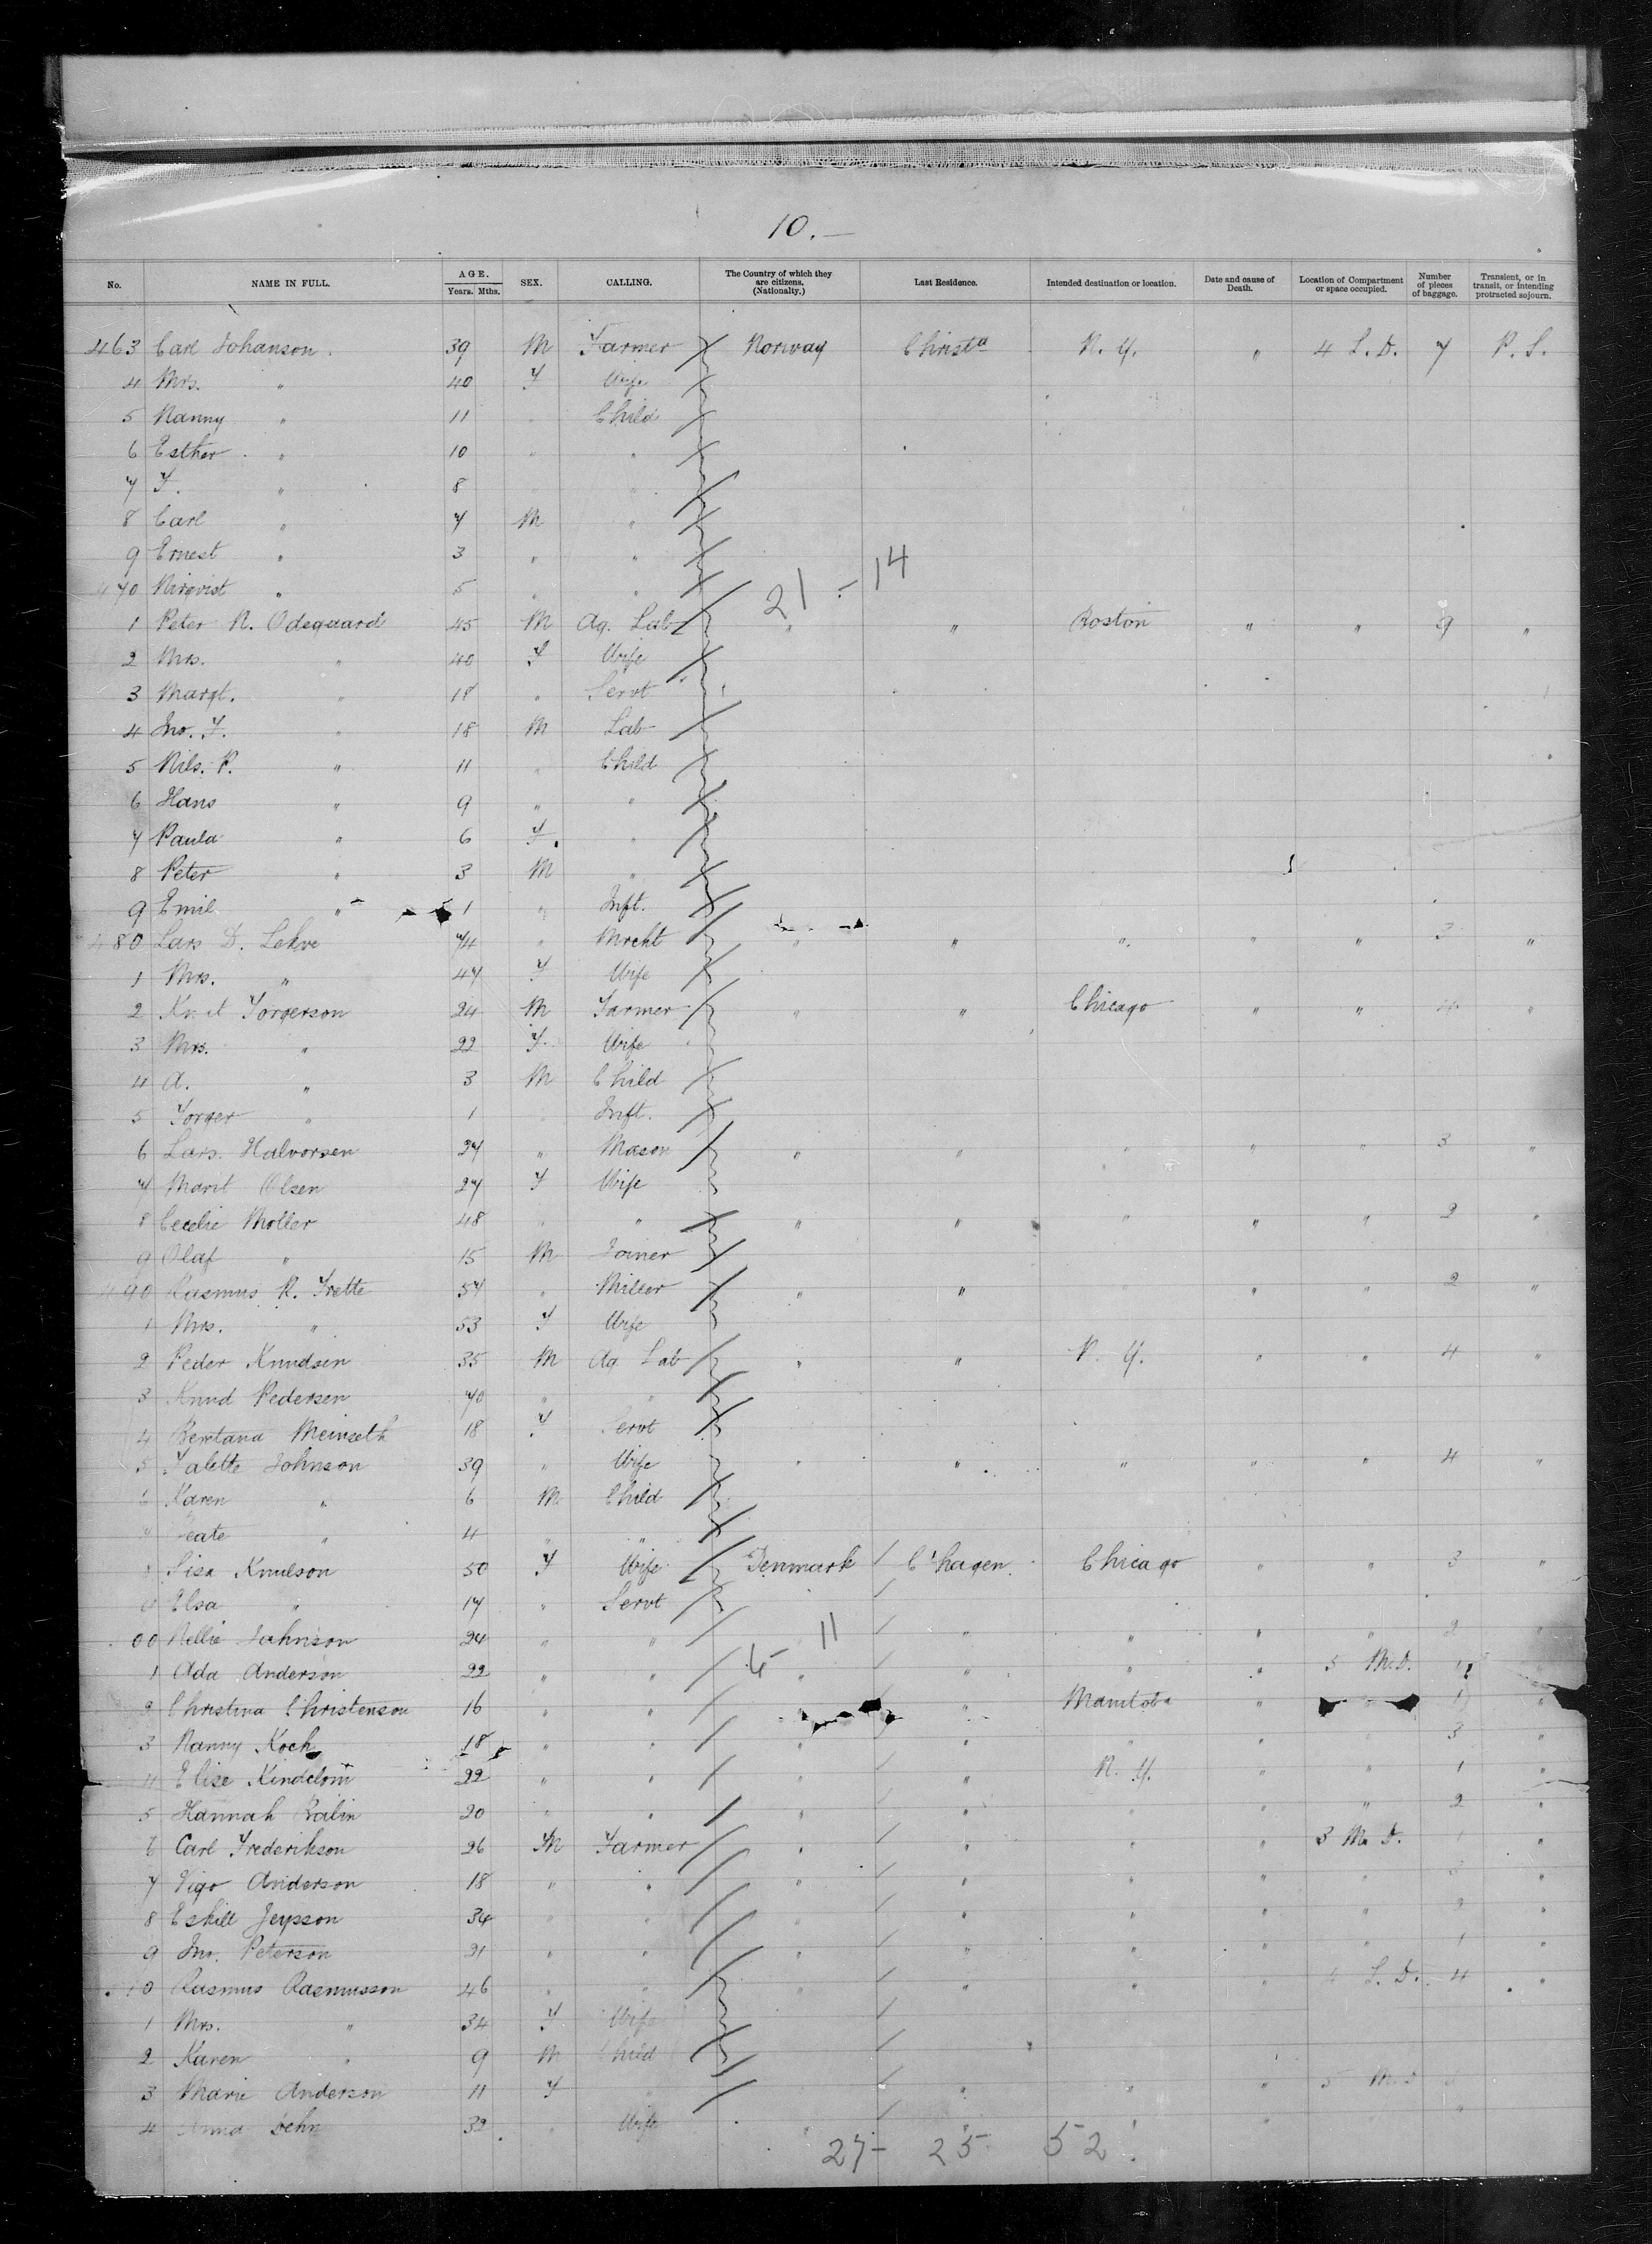 10.—
No. NAME IN FULL. AGE. Years. Mths. SEX. CALLING. The Country of which they are citizens. (Nationalty.) Last Residence. Intended destination or location. Date and cause of Death. Location of Compartment or space occupied. Number of pieces of baggage. Transient, or in transit, or intending protracted sojourn.
463 Carl Johanson. 39 M Farmer Norway Christa N. Y. " 4 L. D. 7 P. S.
4 Mrs. " 40 F Wife
5 Nanny " 11 " Child
6 Esther " 10 " "
7 F. " 8 " "
8 Carl " 7 M "
9 Ernest " 3 " "
470 " 5 " "
21 - 14
1 Peter N. Odegaard 45 M Ag. Lab " " Boston " " 9 "
2 Mrs. " 40 F Wife
3 Margt. " 18 " Servt
4 Jno. F. " 18 M Lab
5 Nils. P. " 11 " Child
6 Hans " 9 " "
7 Paula " 6 F. "
8 Peter " 3 M "
9 Emil " 1 " Inft.
480 Lars D. Lehve 74 " Mrcht " " " " " 3 "
1 Mrs. " 47 F Wife
2 Torgerson 24 M Farmer " " Chicago " " 4 "
3 Mrs. " 22 F. Wife
4 A. " 3 M Child
5 Torger " 1 Inft.
6 Lars. Halvorsen 27 " Mason " " " " " 3 "
7 Marit Olsen 27 F Wife
8 Cecelie Moller 48 " " " " " " " 2 "
9 Olaf " 15 M Joiner
490 Rasmus R. Trette 57 " Miller " " " " " 2 "
1 Mrs. " 53 F Wife
2 Peder Knudsen 35 M Ag Lab " " N. Y. " " 4 "
3 Knud Pedersen 70 " "
4 Meinseth 18 F Servt
5 Johnson 39 " Wife " " " " " 4 "
6 Karen " 6 M Child
7 Beate " 4 " "
8 Sisa Knulson 50 F Wife Denmark C'hagen. Chicago " " 3 "
9 Elsa " 17 " Servt
00 Nellie Johnson 24 " " " " " " 2 "
11
1 Ada Anderson 22 " " " " " " 5 M.D. 1 "
2 Christina Christenson 16 " " " " Manitoba " " 1 "
3 Nanny Koch 18 " " " " " " " 3 "
4 Elise 22 " " " " N. Y. " " 1 "
5 Hannah 20 " " " " " " " 2 "
6 Carl Frederikson 26 M Farmer " " " " 3 M. D. 1 "
7 Vigo Anderson 18 " " " " " " " 3 "
8 Eskill Jeppson 34 " " " " " " " 2 "
9 Jno. Peterson 21 " " " " " " " 1 "
10 Rasmus Rasmusson 46 " " " " " " 4 L. D. 4 "
1 Mrs. " 34 F Wife
2 Karen " 9 M Child
3 Marie Anderson 11 F " " " " " 5 M.D
4 Anna Dehn 32 " Wife " " " " "
27 - 25 52